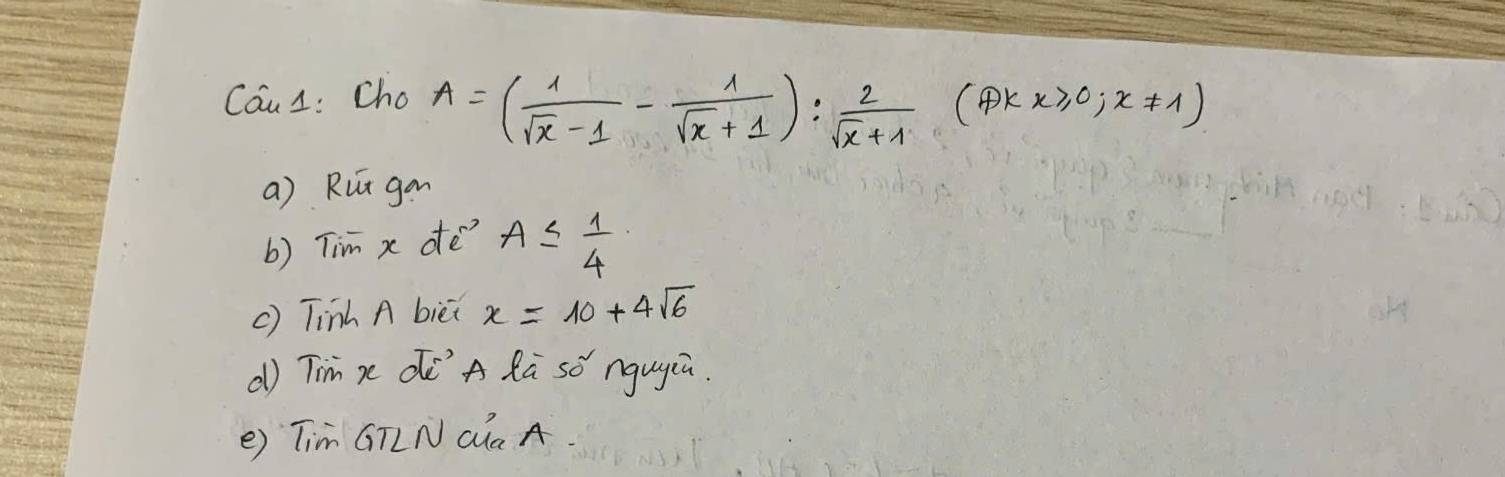 Câu 1: Cho A = (1/(√x - 1) - 1/(√x + 1)) : 2/(√x + 1) (ĐK x ≥ 0; x ≠ 1)
a) Rút gọn
b) Tìm x để A ≤ 1/4.
c) Tính A biết x = 10 + 4√6
d) Tìm x để A là số nguyên.
e) Tìm GTLN của A.